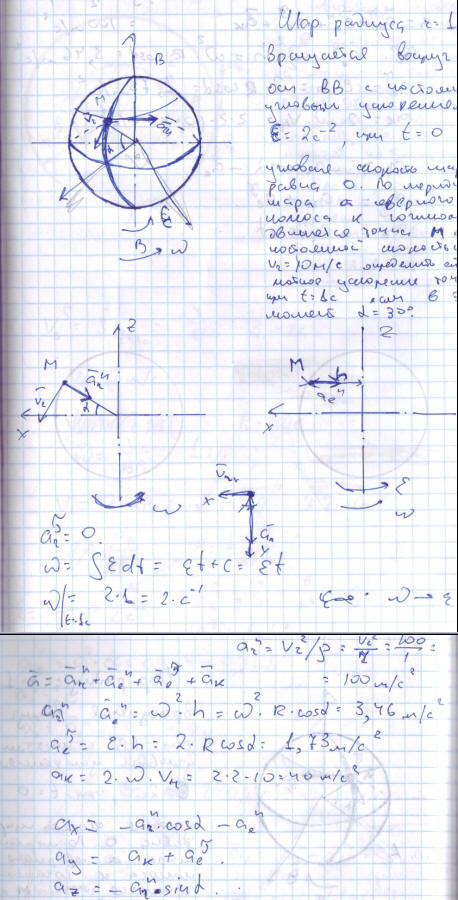 Шар радиуса r = 1
Вращается вокруг
оси BB с постоян
угловым ускорением
ε = 2c⁻², при t = 0
угловая скорость шар
равна 0. По мериди
шара от северного
полюса к южному
движется точка M с
постоянной скоростью
v₂ = 10 м/с определить
ускорение точ
при t = 1c если в э
момент α = 30°
B
M
v₂
α
ε
B
ω
z
M
v̄₂
ā₂ⁿ
α
x
ω
z
M
aₑⁿ
h
x
ε
ω
x
ā
y
= 0.
ω = ∫εdt = εt + C = εt
ω|t=1c = 2·1 = 2·c⁻¹
ω → ε
a₂ⁿ = v₂²/ρ = v₂²/r = 100/1 =
= 100 м/с²
ā = ā₂ⁿ + āₑⁿ + āₑ^τ + āₖ
āₑⁿ = ω²·h = ω²·R·cosα = 3,46 м/с²
aₑ^τ = ε·h = 2·R cosα = 1,73 м/с²
aк = 2·ω·vₙ = 2·2·10 = 40 м/с²
ax = -a₂ⁿ·cosα - aₑⁿ
ay = aк + aₑ^τ.
az = -a₂ⁿ·sinα.